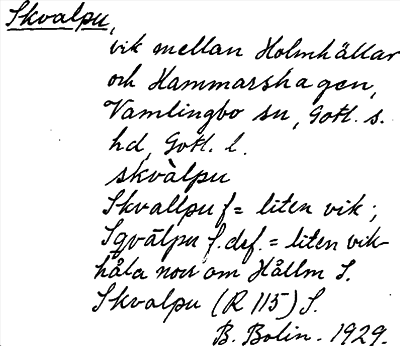 Skvalpu,
vik mellan Holmhällar
och Hammarshagen,
Vamlingbo sn, Gotl. s.
hd, Gotl. l.
skvàlpu
Skvallpu f = liten vik;
Sqvālpu f. def. = liten vik-
håla norr om Hållm S.
Skvalpu (R 115) S.
B. Bolin. 1929.